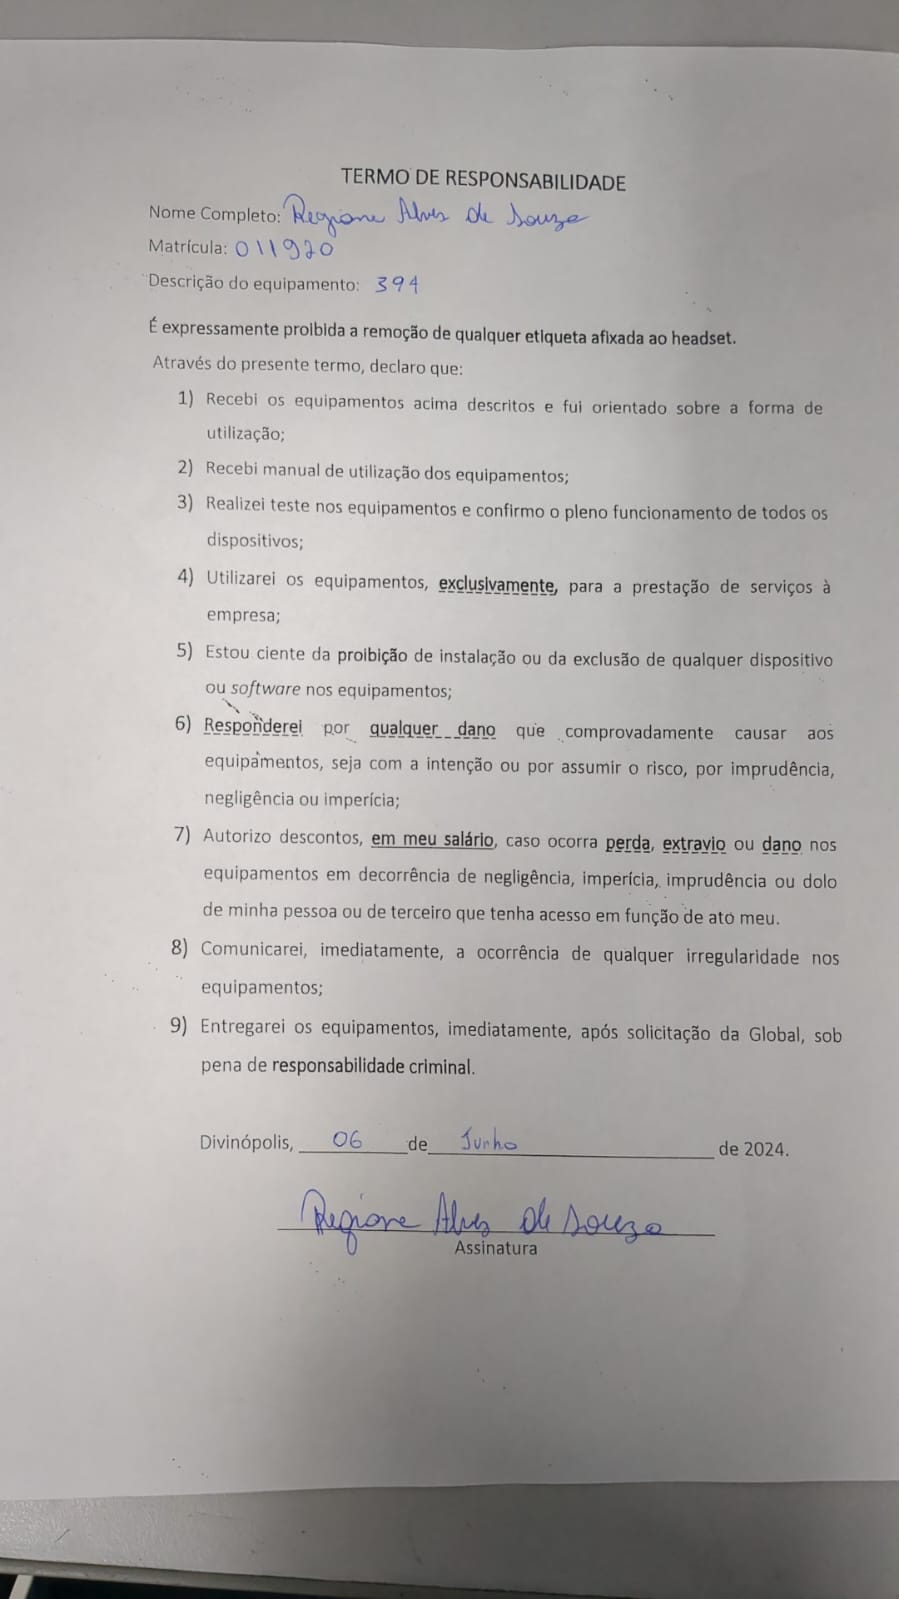 TERMO DE RESPONSABILIDADE
Nome Completo: Regiane Alves de Souza
Matrícula: 011920
Descrição do equipamento: 394
É expressamente proibida a remoção de qualquer etiqueta afixada ao headset.
Através do presente termo, declaro que:
1) Recebi os equipamentos acima descritos e fui orientado sobre a forma de
utilização;
2) Recebi manual de utilização dos equipamentos;
3) Realizei teste nos equipamentos e confirmo o pleno funcionamento de todos os
dispositivos;
4) Utilizarei os equipamentos, exclusivamente, para a prestação de serviços à
empresa;
5) Estou ciente da proibição de instalação ou da exclusão de qualquer dispositivo
ou software nos equipamentos;
6) Responderei por qualquer dano que comprovadamente causar aos
equipamentos, seja com a intenção ou por assumir o risco, por imprudência,
negligência ou imperícia;
7) Autorizo descontos, em meu salário, caso ocorra perda, extravio ou dano nos
equipamentos em decorrência de negligência, imperícia, imprudência ou dolo
de minha pessoa ou de terceiro que tenha acesso em função de ato meu.
8) Comunicarei, imediatamente, a ocorrência de qualquer irregularidade nos
equipamentos;
9) Entregarei os equipamentos, imediatamente, após solicitação da Global, sob
pena de responsabilidade criminal.
Divinópolis, 06 de Junho de 2024.
Regiane Alves de Souza
Assinatura